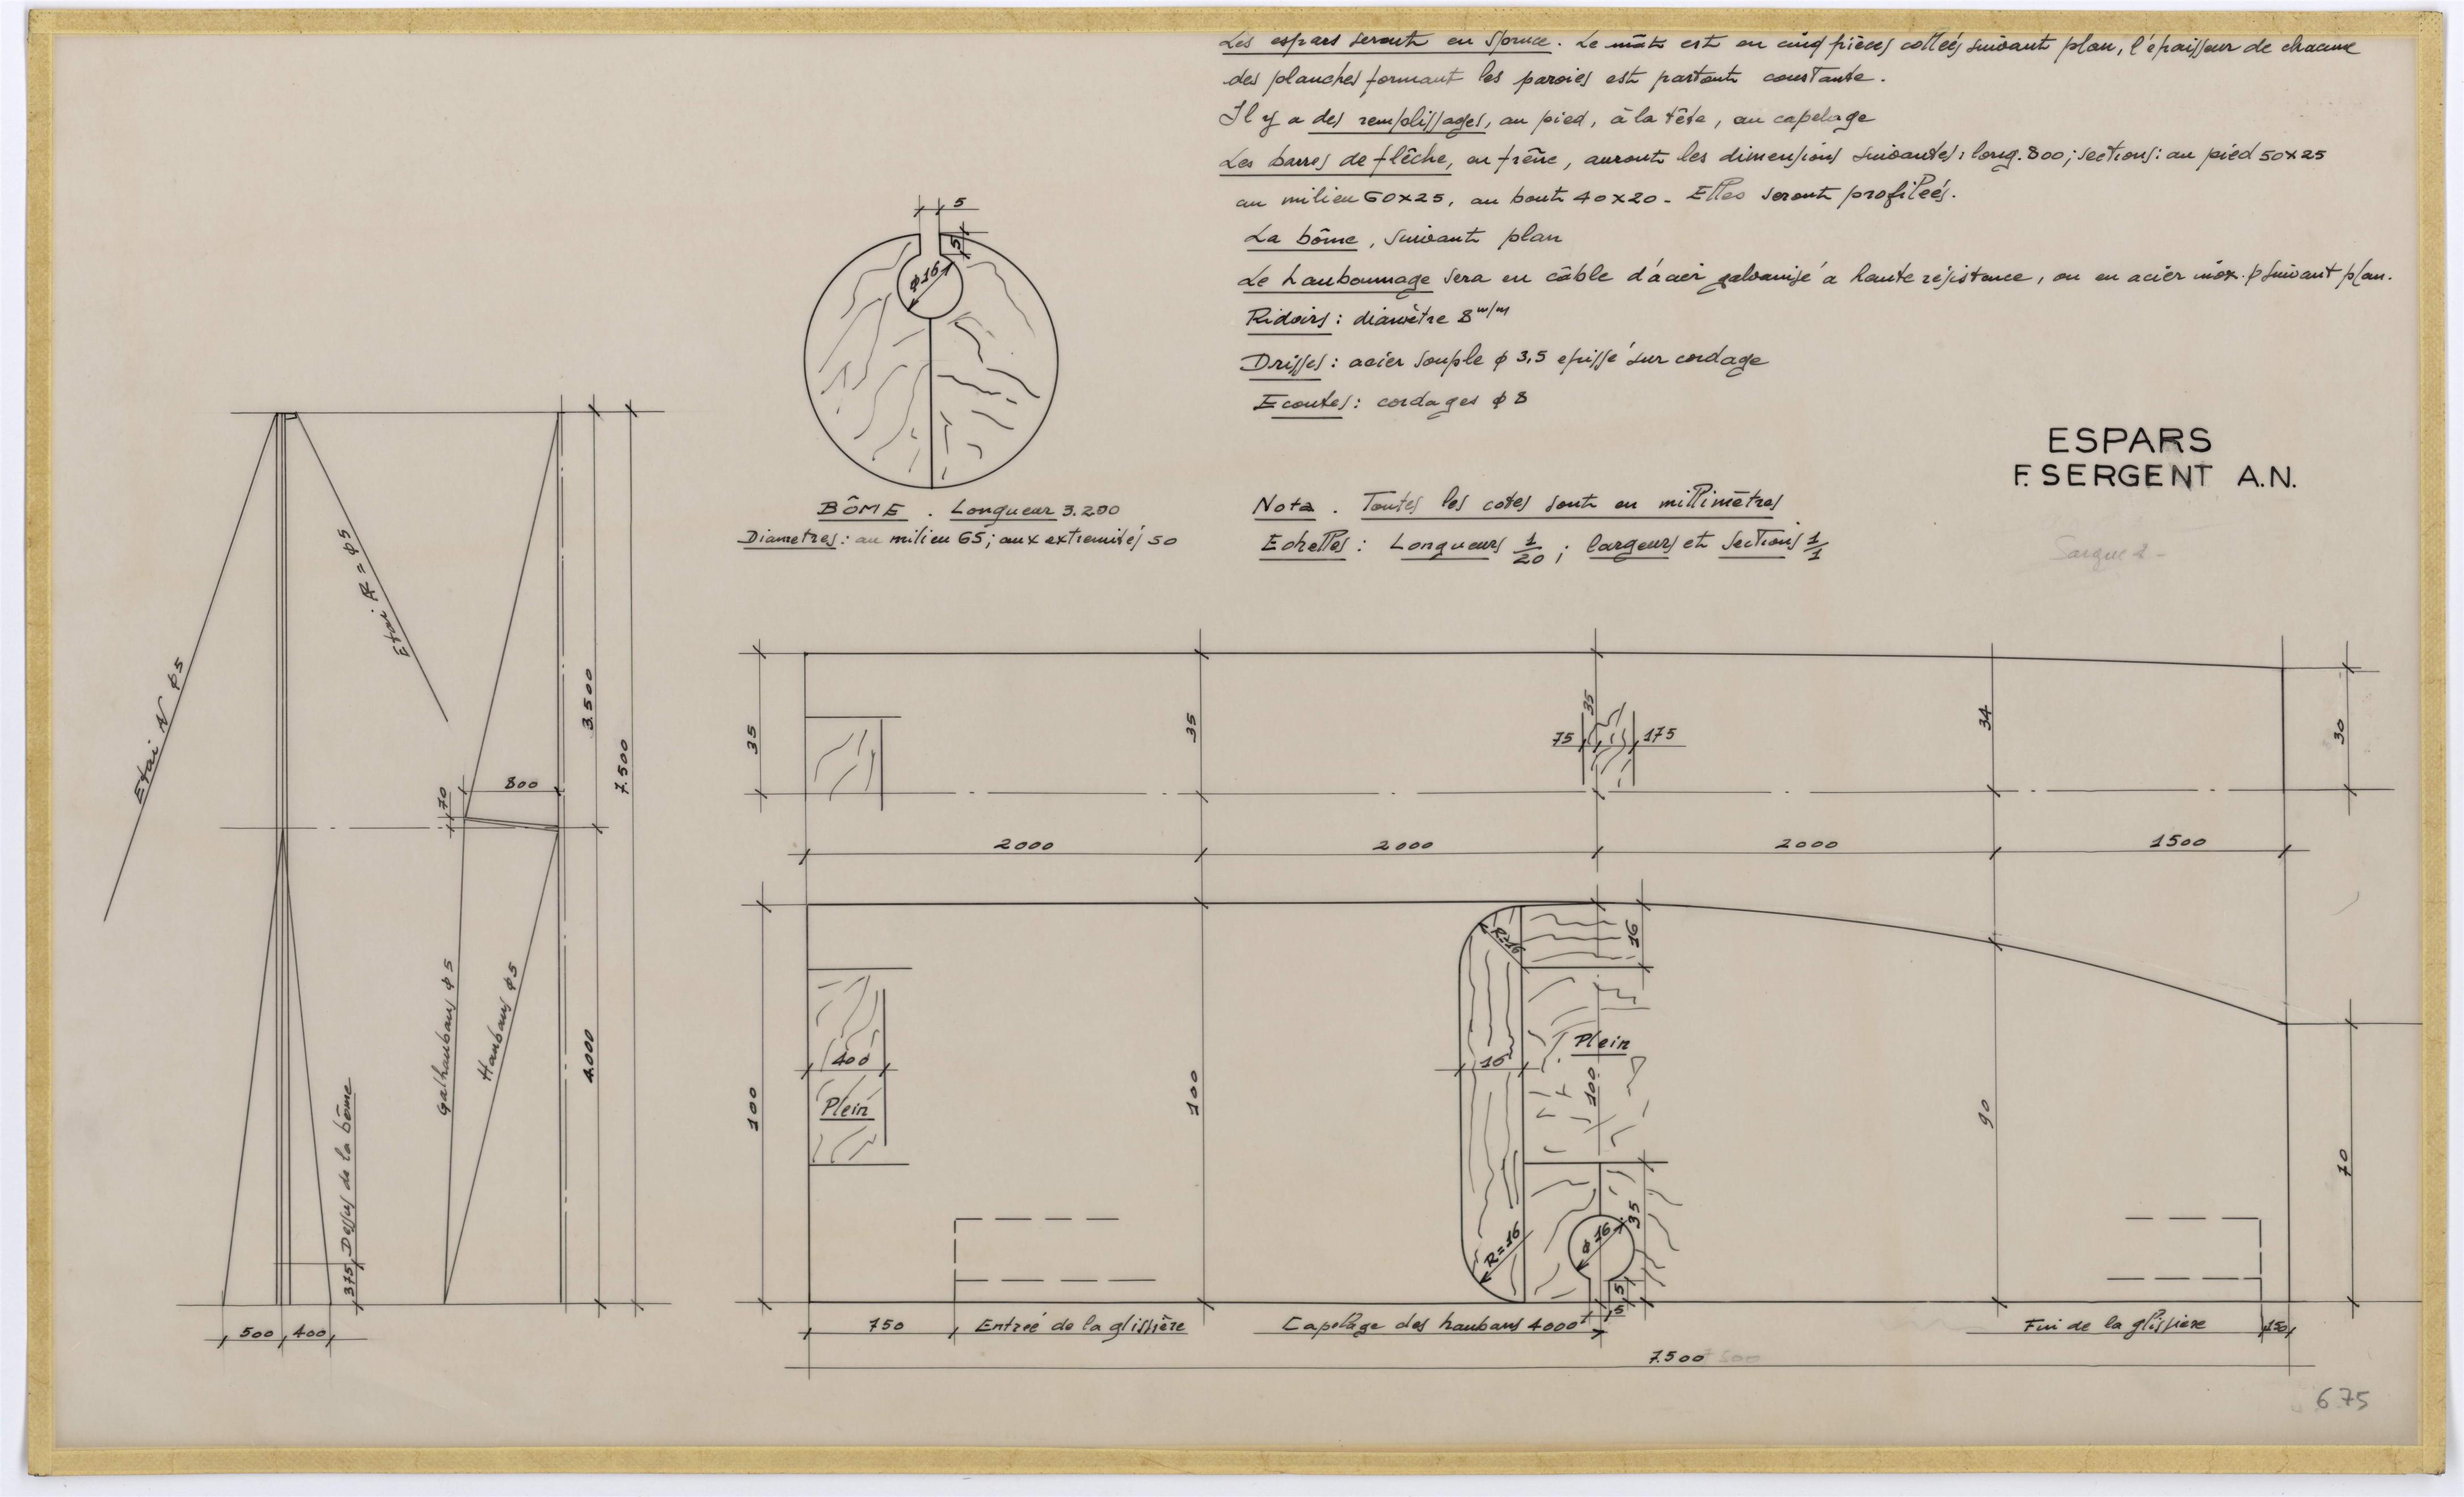 Les espars seront en Spruce. Le mât est en cinq pièces collées suivant plan, l'épaisseur de chacune
des planches formant les paroies est partout constante.
Il y a des remplissages, au pied, à la tête, au capelage
Les barres de flêche, en frêne, auront les dimensions suivantes: long. 800; sections: au pied 50x25
au milieu 60x25, au bout 40x20 - Elles seront profilées.
La bôme, suivant plan
Le haubannage sera en câble d'acier galvanisé à haute résistance, ou en acier inox. ϕ suivant plan.
Ridoirs: diamètre 8 m/m
Drisses: acier souple ϕ 3,5 epissé sur cordage
Ecoutes: cordages ϕ 8
ESPARS
F. SERGENT A.N.
Nota. Toutes les cotes sont en millimètres
Echelles: Longueurs 1/20; largeurs et sections 1/1
5
5
ϕ 16
BÔME. Longueur 3.200
Diametres: au milieu 65; aux extremités 50
Etai AV ϕ5
Etai AR = ϕ5
3.500
7.500
800
70
Galhaubans ϕ5
Haubans ϕ5
4.000
375 Dessus de la bôme
500 400
35
35
35
75
175
34
30
2000
2000
2000
1500
R=16
16
16
Plein
400
Plein
100
100
100
90
70
R=16
ϕ 16
35
5
5
750
Entrée de la glissière
Capelage des haubans 4000
Fin de la glissière
150
7.500
675